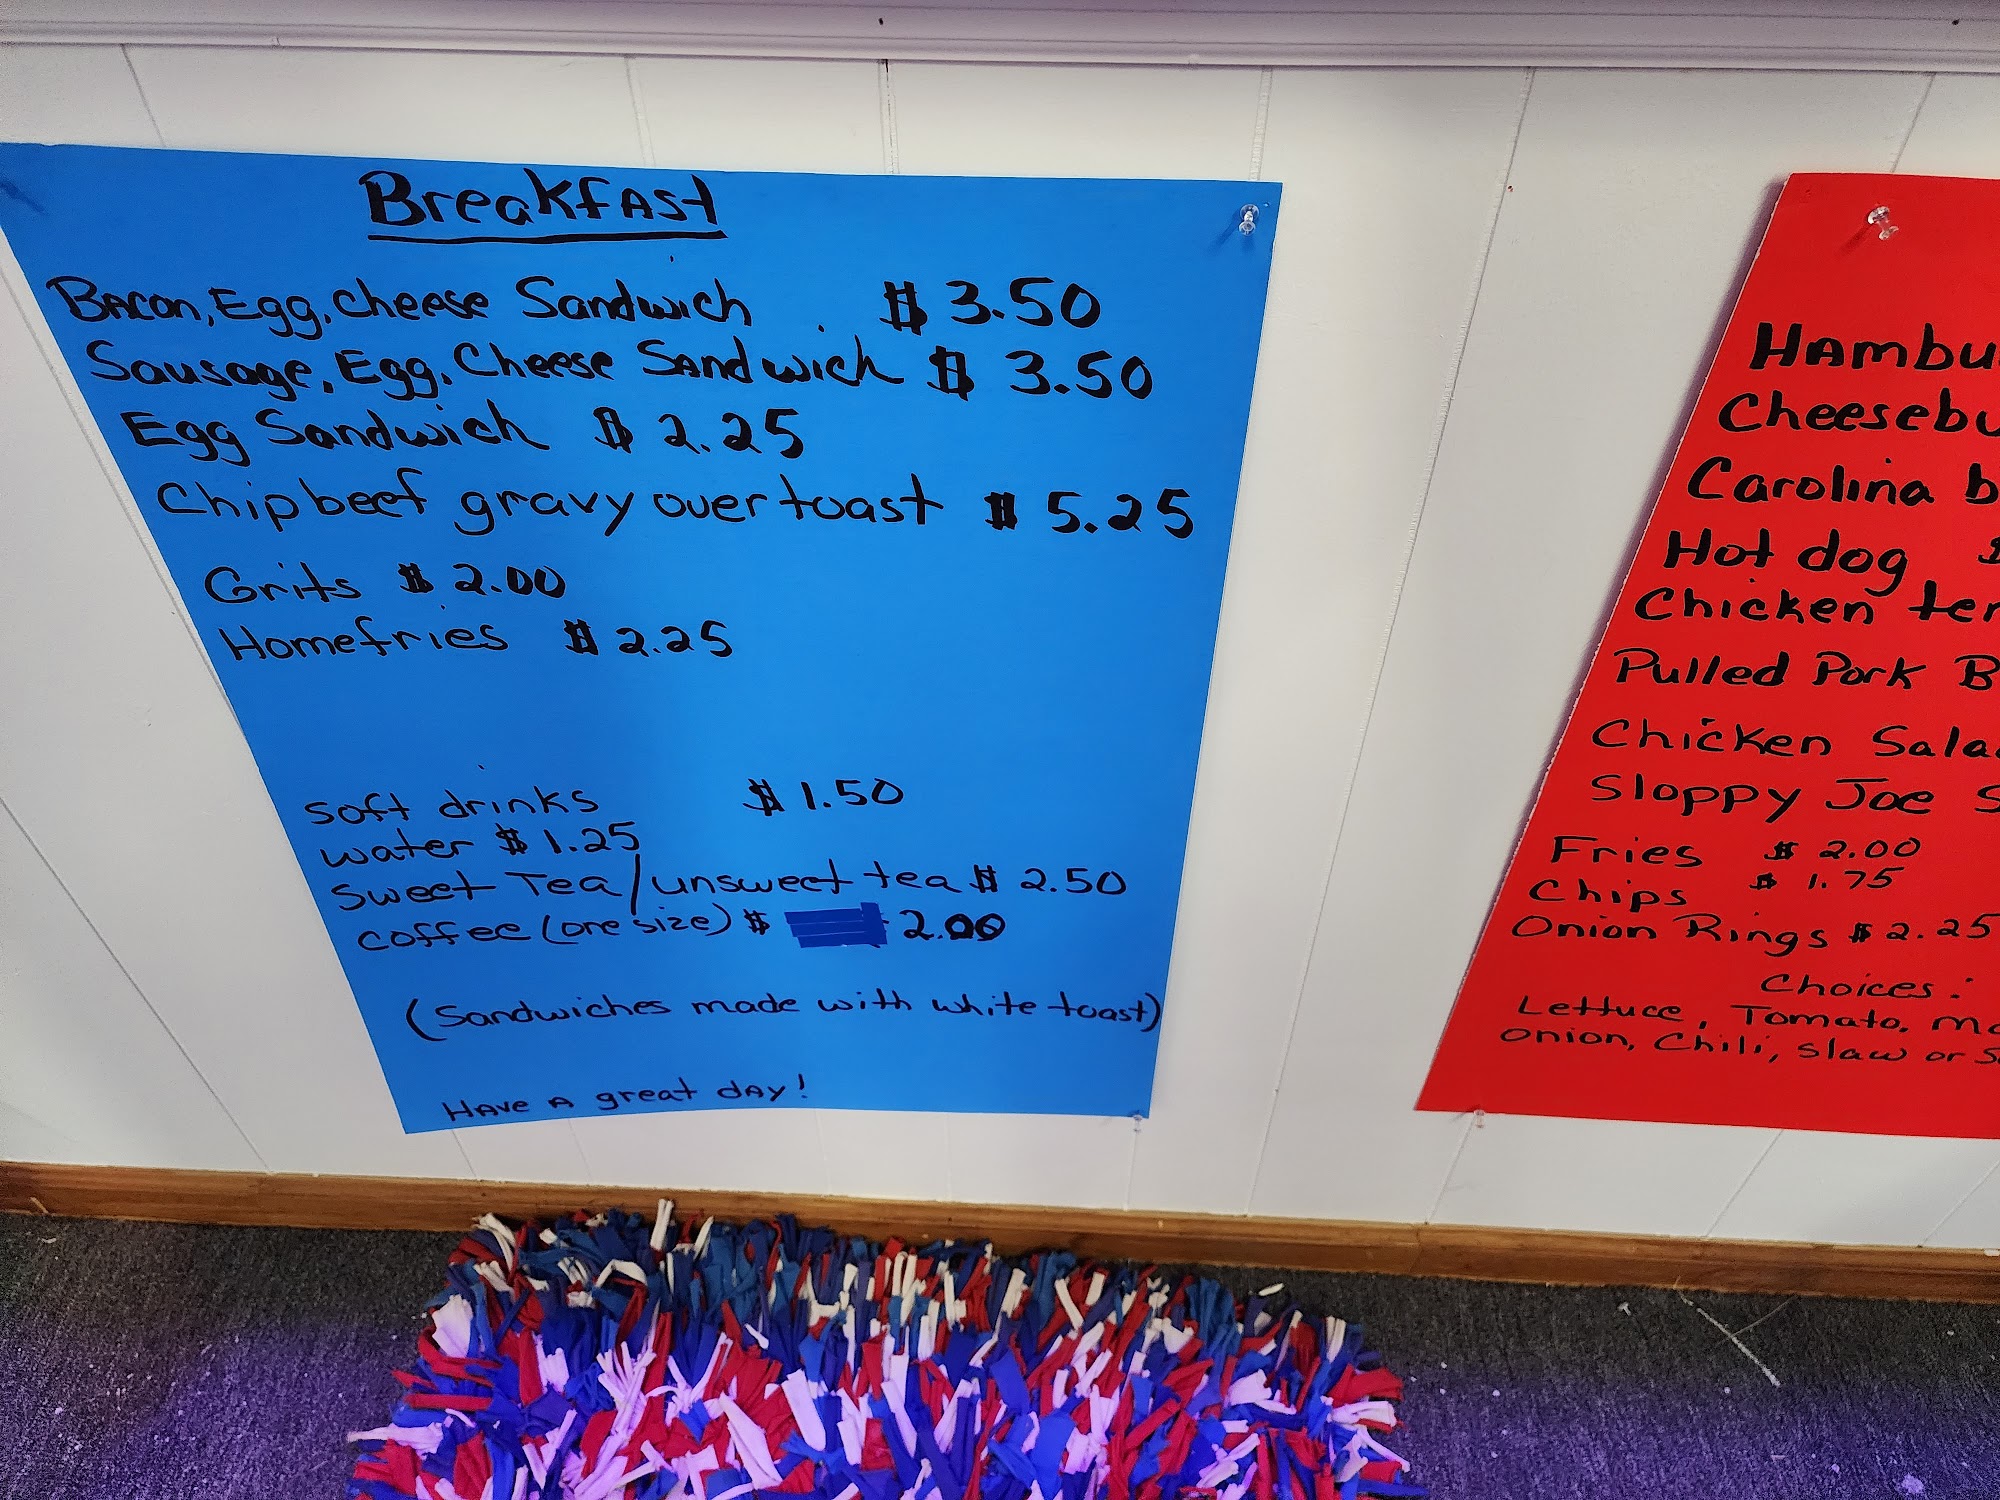 Breakfast
Bacon, Egg, Cheese Sandwich $3.50
Sausage, Egg, Cheese Sandwich $3.50
Egg Sandwich $2.25
Chipbeef gravy over toast $5.25
Grits $2.00
Homefries $2.25
soft drinks $1.50
water $1.25
sweet Tea/unsweet tea $2.50
coffee (one size) $ 2.00
(Sandwiches made with white toast)
Have A great day!
Hambu
Cheesebu
Carolina b
Hot dog $
Chicken ten
Pulled Pork B
Chicken Sala
Sloppy Joe S
Fries $2.00
Chips $1.75
Onion Rings $2.25
Choices:
Lettuce, Tomato, Ma
Onion, Chili, slaw or S